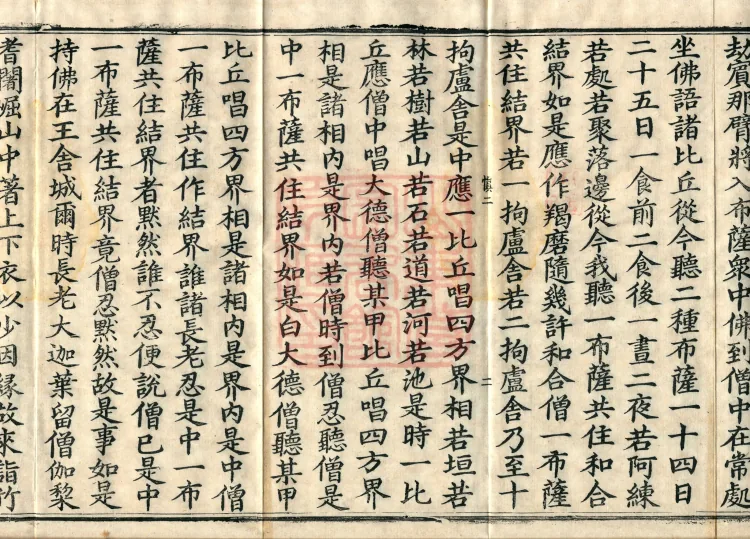 劫賓那臂將入布薩衆中佛到僧中在常處
坐佛語諸比丘從今聽二種布薩一十四日
二十五日一食前二食後一晝二夜若阿練
若處若聚落邊從今我聽一布薩共住和合
結界如是應作羯磨隨幾許和合僧一布薩
共住結界若一拘盧舍若二拘盧舍乃至十
慎二 二
拘盧舍是中應一比丘唱四方界相若垣若
林若樹若山若石若道若河若池是時一比
丘應僧中唱大德僧聽某甲比丘唱四方界
相是諸相内是界内若僧時到僧忍聽僧是
中一布薩共住結界如是白大德僧聽某甲
比丘唱四方界相是諸相内是界内是中僧
一布薩共住作結界誰諸長老忍是中一布
薩共住結界者默然誰不忍便說僧已是中
一布薩共住結界竟僧忍默然故是事如是
持佛在王舍城爾時長老大迦葉留僧伽黎
耆闍崛山中著上下衣以少因縁故來詣竹